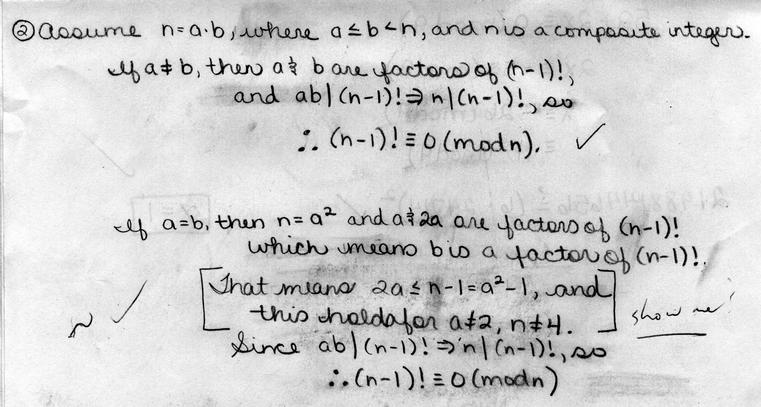 ② Assume n=a·b, where a≤b<n, and n is a composite integer.
If a≠b, then a & b are factors of (n-1)!,
and ab|(n-1)! ⇒ n|(n-1)!, so
∴ (n-1)! ≡ 0 (mod n). ✓
If a=b, then n=a² and a & 2a are factors of (n-1)!
which means b is a factor of (n-1)!.
[That means 2a ≤ n-1=a²-1, and
~ ✓ this holds for a≠2, n≠4.] show me!
Since ab|(n-1)! ⇒ n|(n-1)!, so
∴ (n-1)! ≡ 0 (mod n)